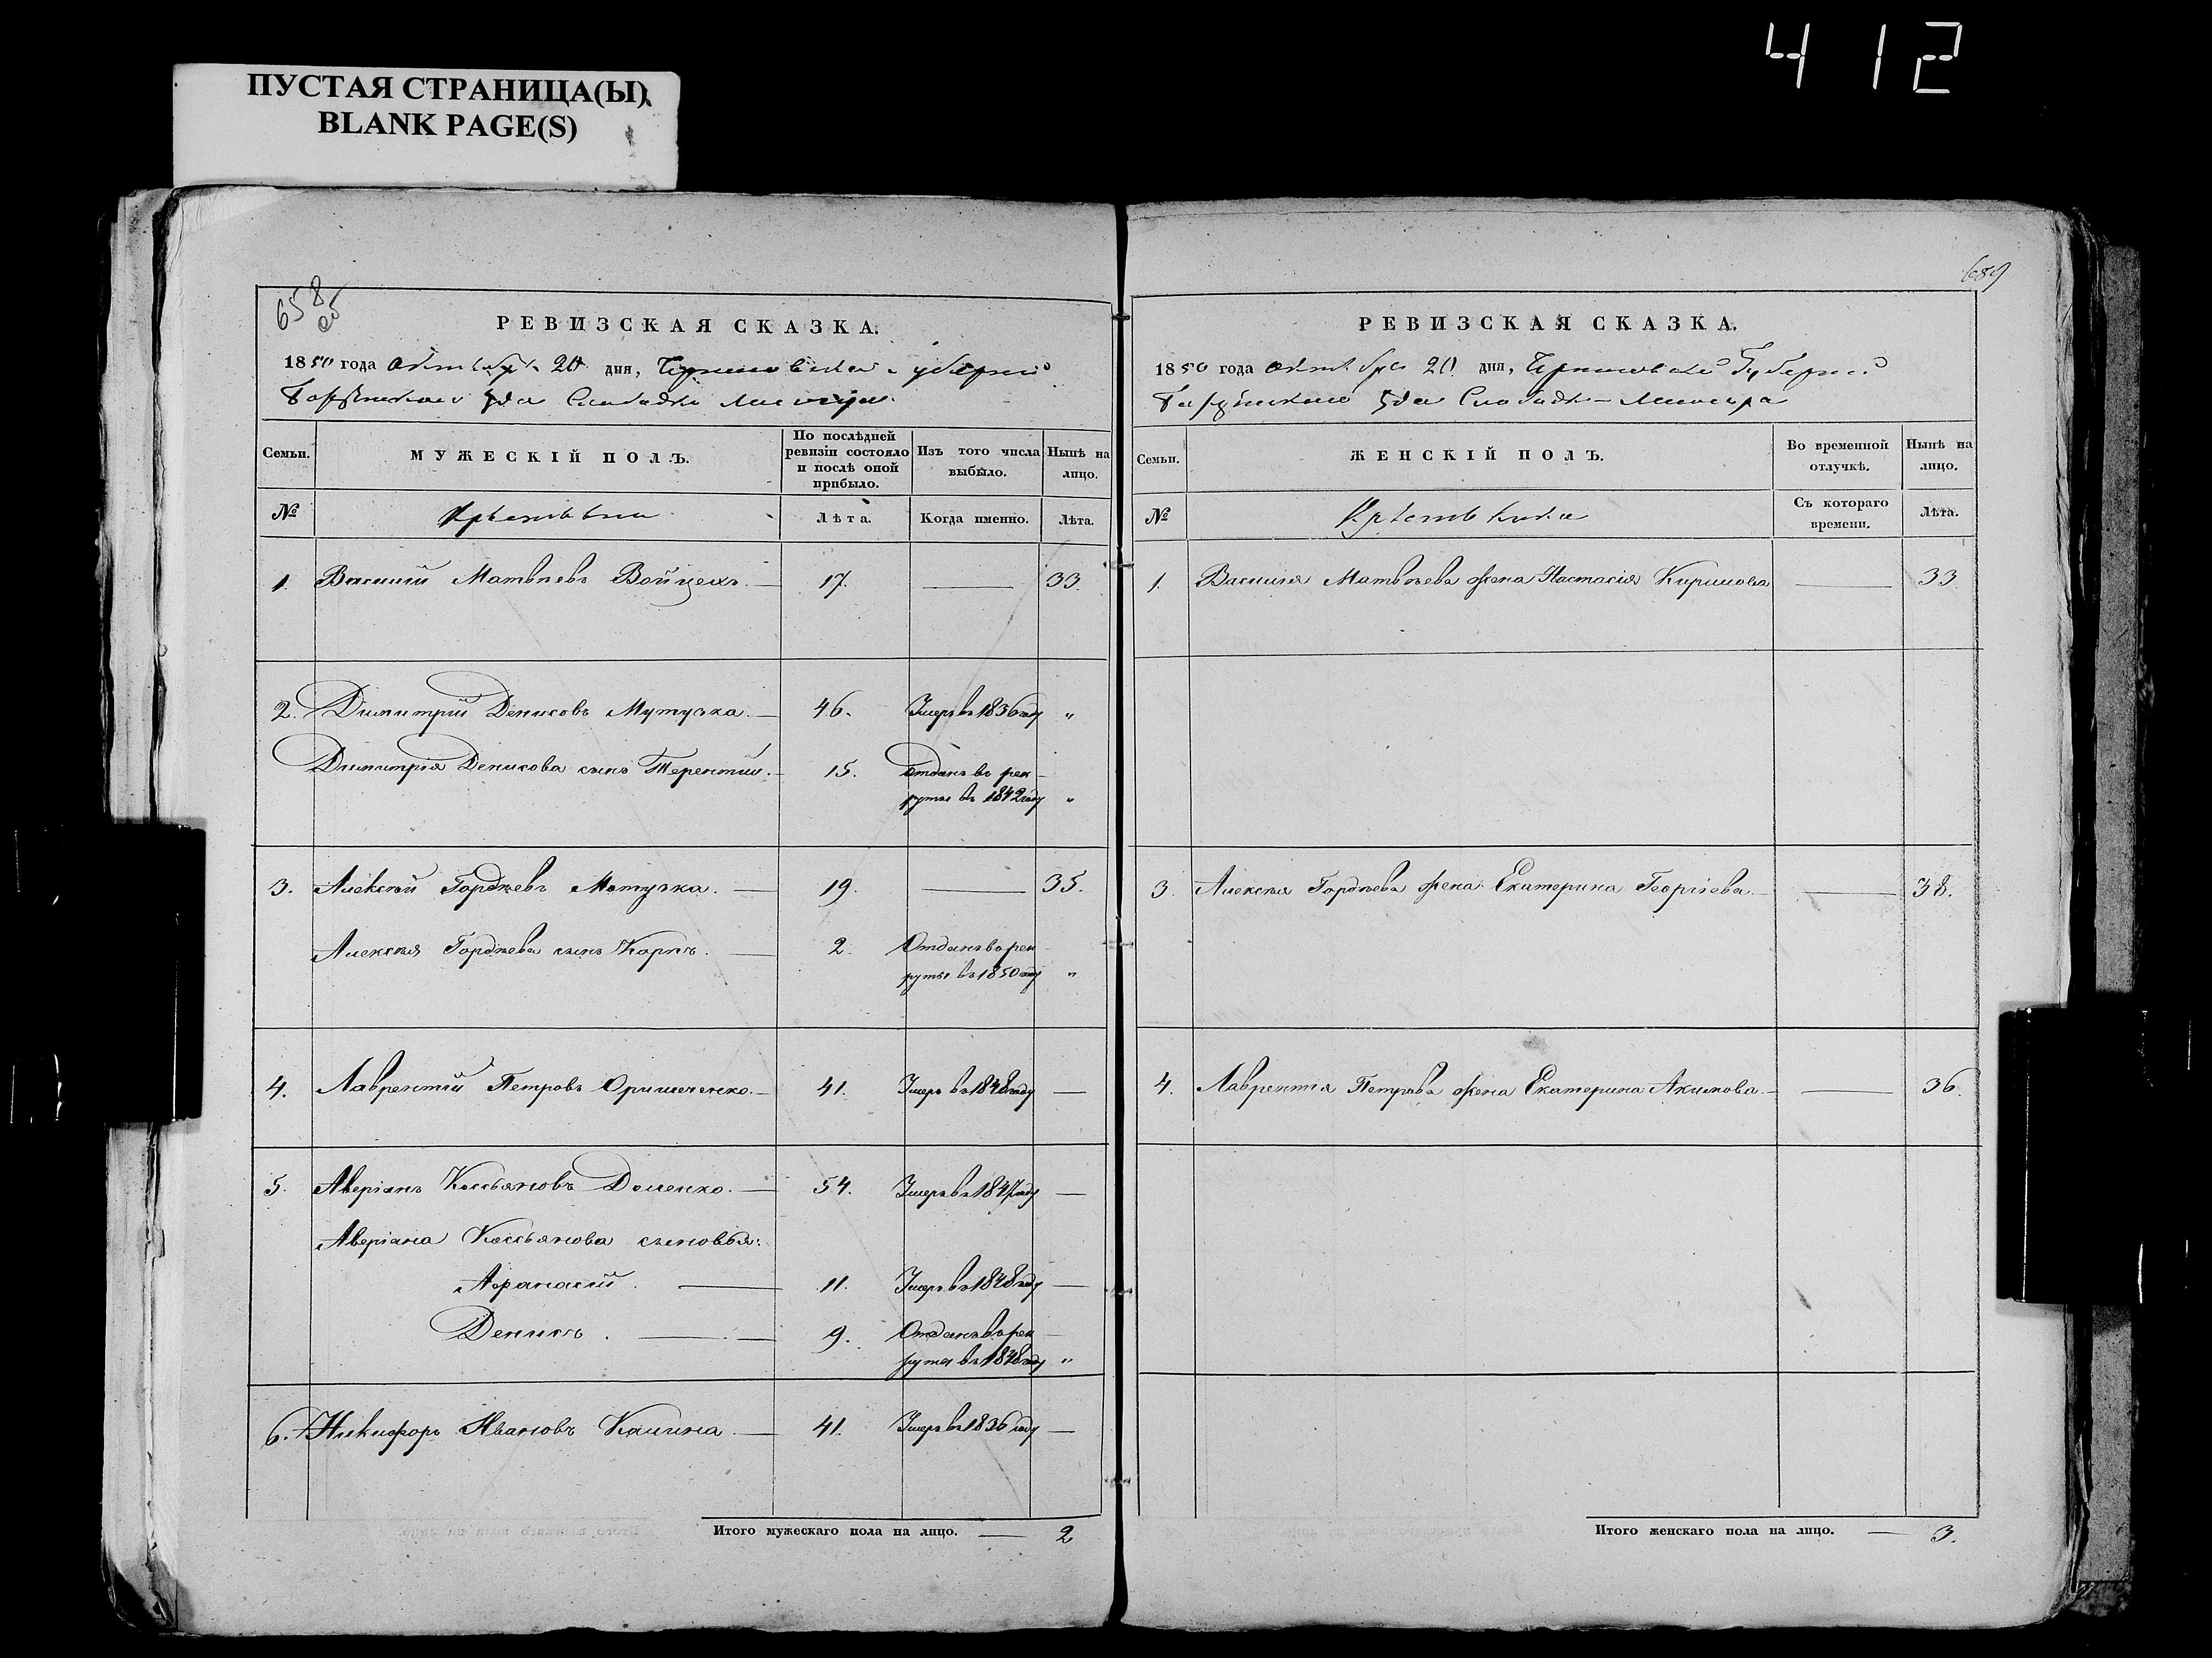 4 12
ПУСТАЯ СТРАНИЦА(Ы)
BLANK PAGE(S)
658
об
РЕВИЗСКАЯ СКАЗКА.
1850 года октября 20 дня, Черниговской губерніи
Слободки
Семьи.
МУЖЕСКІЙ ПОЛЪ.
По послѣдней ревизіи состояло и послѣ оной прибыло.
Изъ того числа выбыло.
Нынѣ на лицо.
№
Лѣта.
Когда именно.
Лѣта.
1. Василій Матвѣевъ Войцехъ. — 17. — 33.
2. Димитрій Денисовъ Мутузка. — 46. Умеръ въ 1836 году "
Димитрія Денисова сынъ Терентій. — 15. Отданъ въ рек-
руты въ 1842 году "
3. Алексѣй Гордѣевъ Матузка. — 19. — 35.
Алексѣя Гордѣева сынъ Карпъ. — 2. Отданъ въ рек-
руты въ 1850 году "
4. Лаврентій Петровъ Оришеченко. — 41. Умеръ въ 1848 году —
5. Аверіанъ Кассьяновъ Доленко. — 54. Умеръ въ 1847 году —
Аверіана Кассьянова сыновья:
Афанасій. — 11. Умеръ въ 1848 году —
Денисъ. — 9. Отданъ въ рек-
руты въ 1848 году "
6. Никифоръ Ивановъ Калина. — 41. Умеръ въ 1836 году —
Итого мужескаго пола на лицо. — 2
659
РЕВИЗСКАЯ СКАЗКА.
1850 года октября 20 дня, Черниговской Губерніи
Слободки
Семьи.
ЖЕНСКІЙ ПОЛЪ.
Во временной отлучкѣ.
Нынѣ на лицо.
№
Съ котораго времени.
Лѣта.
1. Василія Матвѣева жена Настасія Кирилова — 33.
3. Алексѣя Гордѣева жена Екатерина Георгіева. — 38.
4. Лаврентія Петрова жена Екатерина Акимова. — 36.
Итого женскаго пола на лицо. — 3.